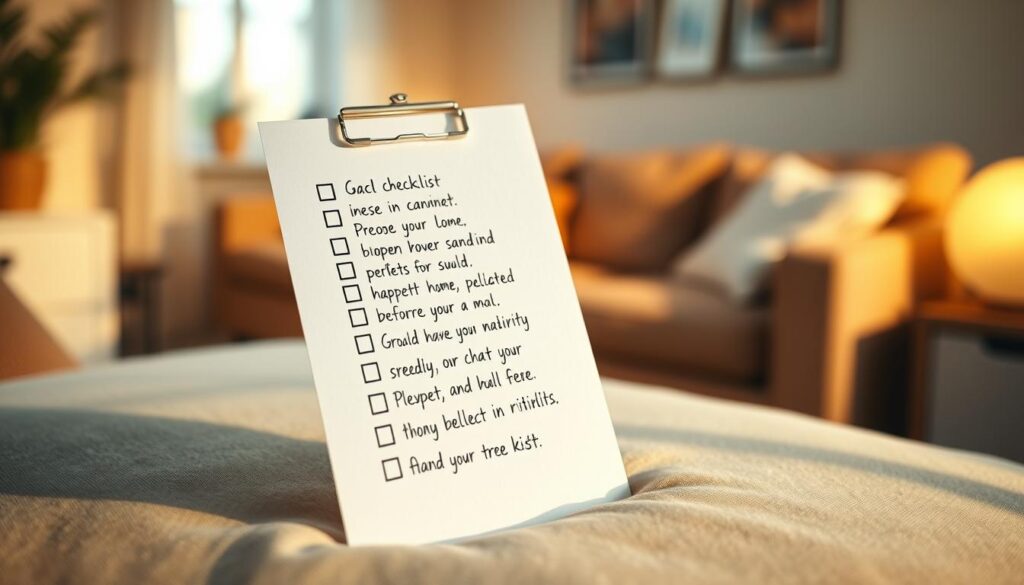 Gacl checklist
inese in canninet.
Preose your lome,
biopen hover sandind
perfets for suuld.
happett home, pellcated
beforre your a mol.
Groald have you nalivrity
sreedly, our chat your
Plevpet, and hull fere.
thony bellect in ritirlits.
Aand your tree kist.